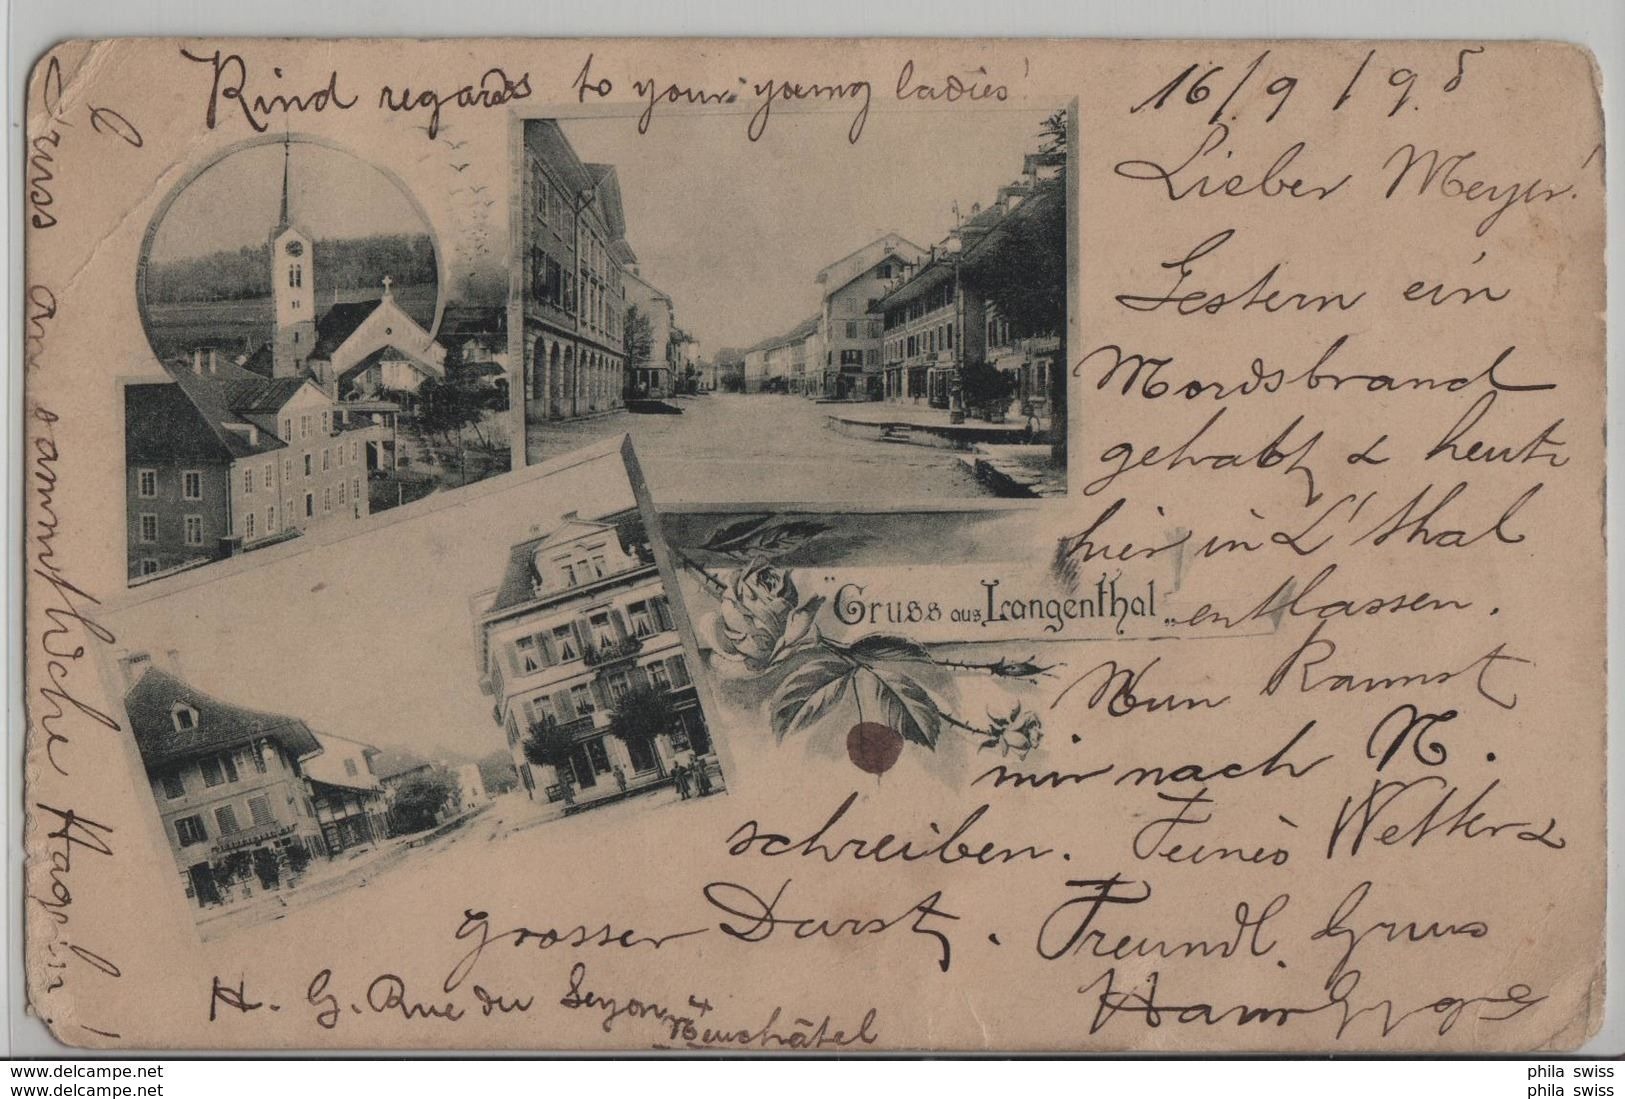 Kind regards to your young ladies!
16/9/98
Lieber Meyer!
Gestern ein
Mordsbrand
gehabt & heute
hier in L'thal
entlassen.
Nun kannst
mir nach N.
schreiben. Feines Wetter &
grosser Durst. Freundl. Gruss
Hans
H. G. Rue du Seyon 4
Neuchâtel
"Gruss aus Langenthal"
Gruss an sammtliche
phila swiss
phila swiss